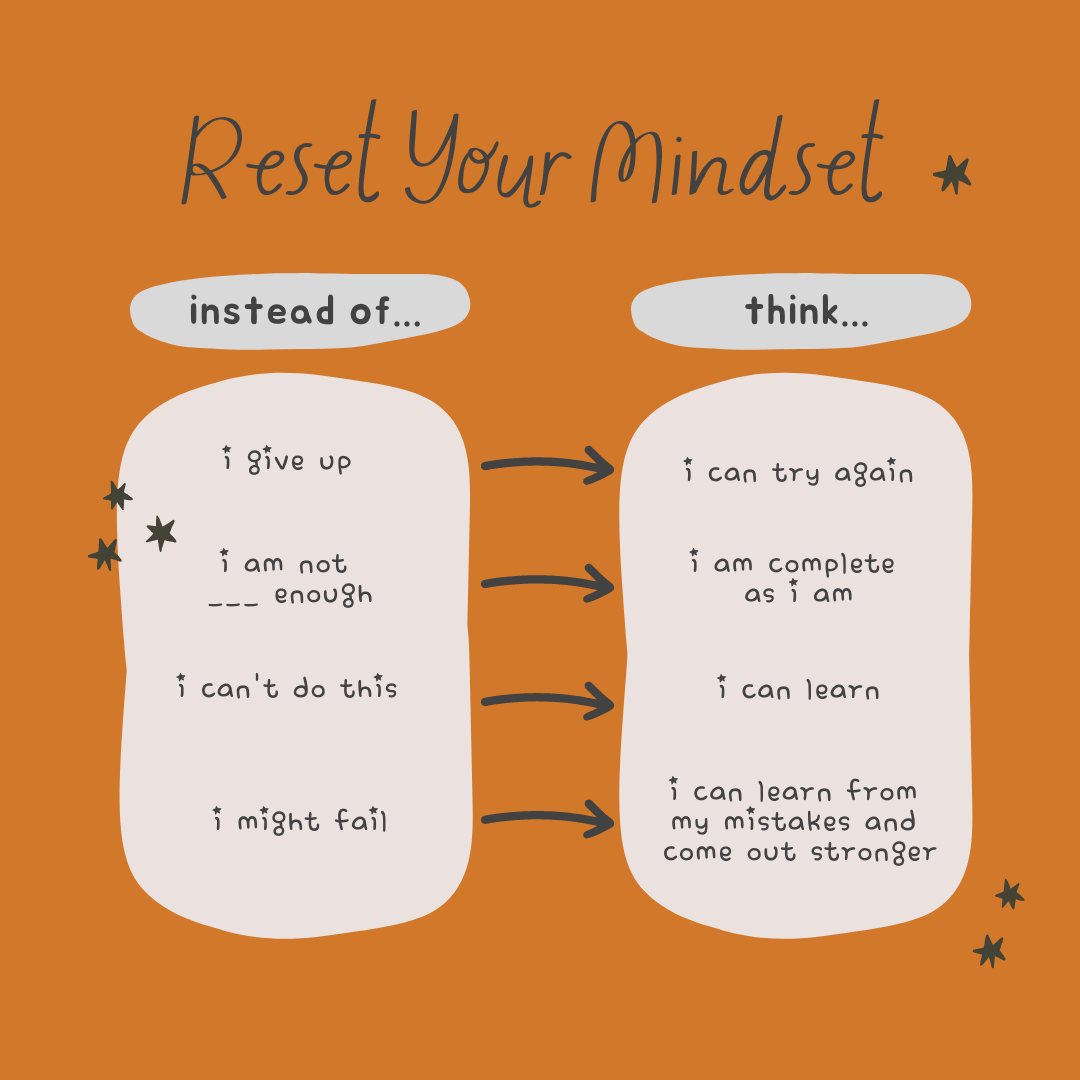 Reset Your Mindset
instead of...
think...
i give up
i can try again
i am not
___ enough
i am complete
as i am
i can't do this
i can learn
i might fail
i can learn from
my mistakes and
come out stronger